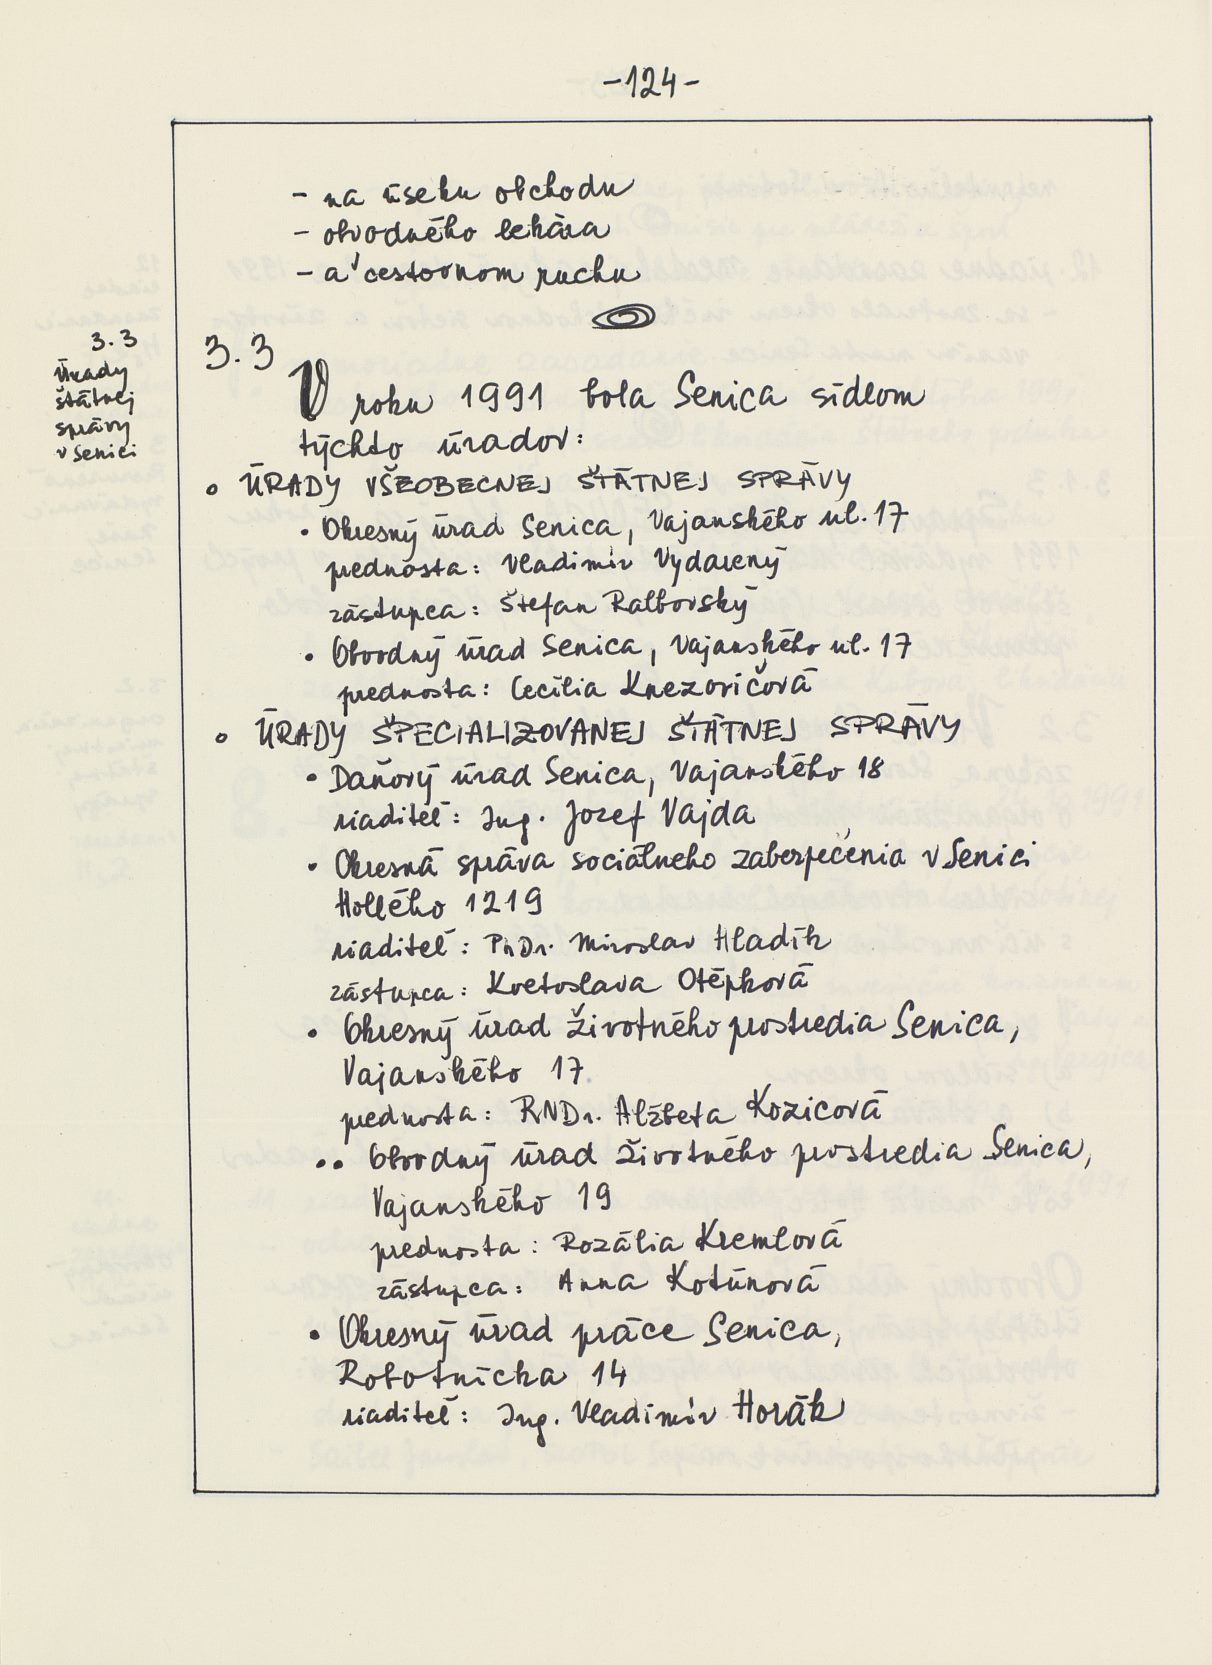 -124-
- na úseku obchodu
- obvodného lekára
- a v cestovnom ruchu
3.3
Úrady
štátnej
správy
v Senici
3.3
V roku 1991 bola Senica sídlom
týchto úradov:
• ÚRADY VŠEOBECNEJ ŠTÁTNEJ SPRÁVY
• Okresný úrad Senica, Vajanského ul. 17
prednosta: Vladimír Vydarený
zástupca: Štefan Ralbovský
• Obvodný úrad Senica, Vajanského ul. 17
prednosta: Cecília Knezovičová
• ÚRADY ŠPECIALIZOVANEJ ŠTÁTNEJ SPRÁVY
• Daňový úrad Senica, Vajanského 18
riaditeľ: Ing. Jozef Vajda
• Okresná správa sociálneho zabezpečenia v Senici
Hollého 1219
riaditeľ: PhDr. Miroslav Hladík
zástupca: Kvetoslava Otépková
• Okresný úrad životného prostredia Senica,
Vajanského 17.
prednosta: RNDr. Alžbeta Kozicová
•• Obvodný úrad životného prostredia Senica,
Vajanského 19
prednosta: Rozália Kremlová
zástupca: Anna Kotúnová
• Okresný úrad práce Senica,
Robotnícka 14
riaditeľ: Ing. Vladimír Horák